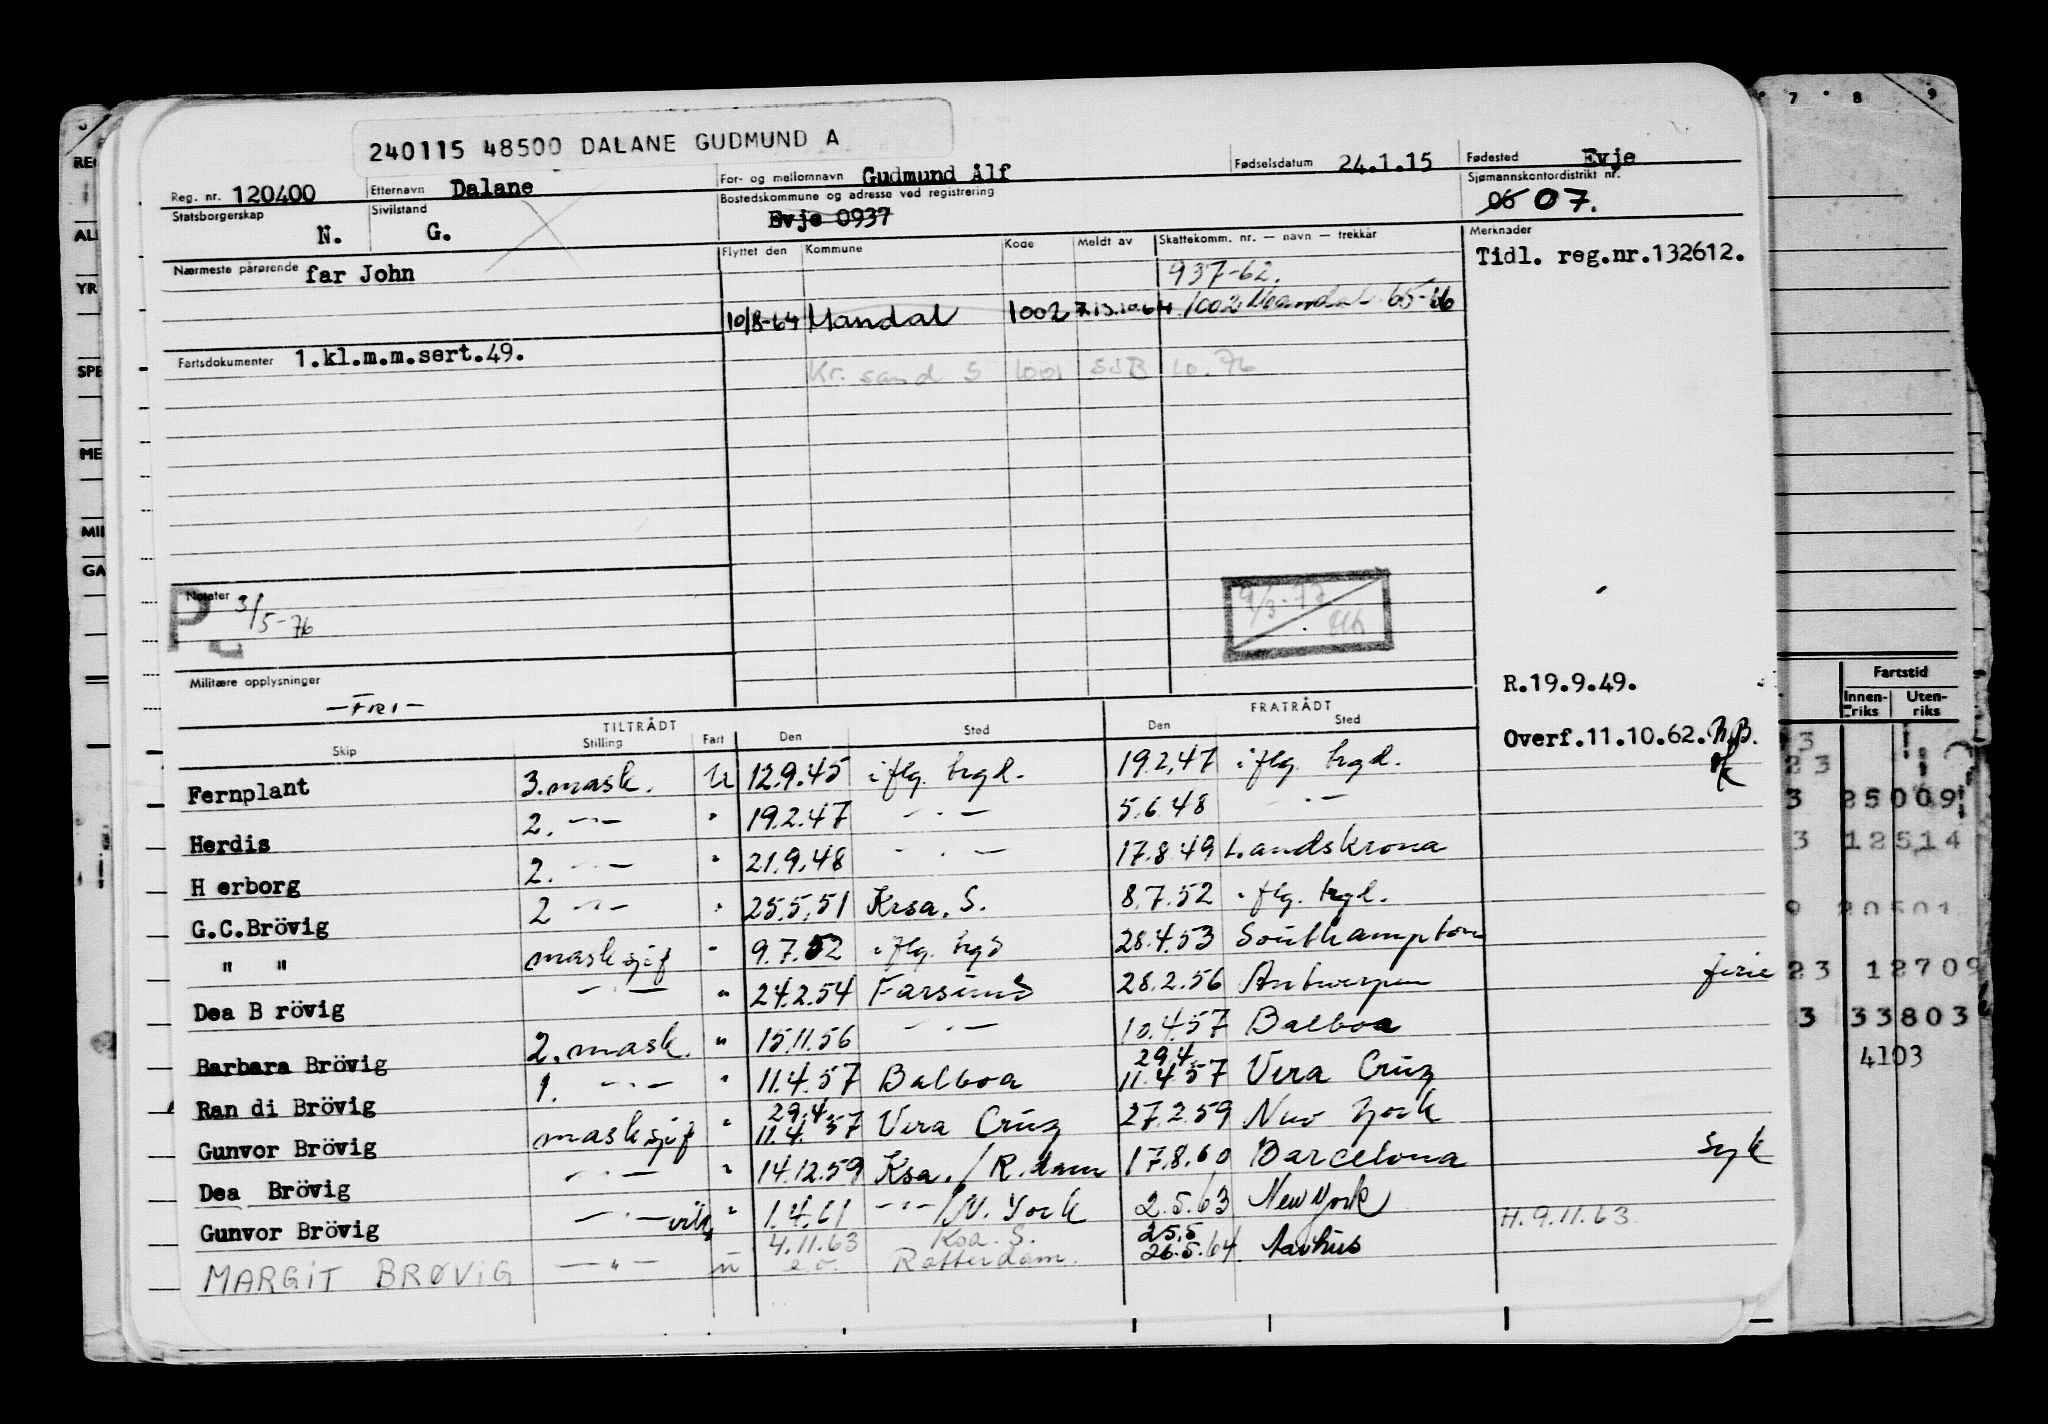 240115 48500 DALANE GUDMUND A
Reg. nr. 120400 Etternavn Dalane For- og mellomnavn Gudmund Alf Fødselsdatum 24.1.15 Fødested Evje
Statsborgerskap N. Sivilstand G. Bostedskommune og adresse ved registrering Evje 0937 Sjømannskontordistrikt nr. 06 07.
Nærmeste pårørende far John Flyttet den Kommune Kode Meldt av Skattekomm. nr. — navn — trekkår Merknader
937-62. Tidl. reg.nr.132612.
10/8-64 Mandal 1002 1002 Mandal 65-66
Fartsdokumenter 1.kl.m.m.sert.49.
Kr. sand S 1001 SJB 10.76
Notater 3/5-76
Militære opplysninger
-FRI-
R.19.9.49.
Overf.11.10.62.
TILTRÅDT FRATRÅDT
Skip Stilling Fart Den Sted Den Sted
Fernplant 3.mask. U 12.9.45 iflg. hrgd. 19.2.47 iflg. hrgd.
2. -"- " 19.2.47 -"- 5.6.48 -"-
Herdis 2. -"- " 21.9.48 -"- 17.8.49 Landskrona
H erborg
G.C.Brövig 2 -"- " 25.5.51 Krsa. S. 8.7.52 iflg. hrgd.
" " masksjef " 9.7.52 iflg. hrgd 28.4.53 Southampton
Dea B rövig -"- " 24.2.54 Farsund 28.2.56 Antwerpen ferie
Barbara Brövig 2. mask. " 15.11.56 -"- 10.4.57 Balboa
Ran di Brövig 1. -"- " 11.4.57 Balboa 29.4. 11.4.57 Vera Cruz
Gunvor Brövig masksjef " 29.4. 11.4.57 Vera Cruz 27.2.59 New York
Dea Brövig -"- " 14.12.59 Ksa./R.dam 17.8.60 Barcelona syk
Gunvor Brövig -"- " 1.4.61 -"-/N. York 2.5.63 New York
MARGIT BRØVIG -"- u 4.11.63 Ksa. S. Rotterdam. 25.5 26.5.64. Aarhus H.9.11.63
7 8 9
Fartstid
Innenriks Utenriks
25009
12514
20501
12709
33803
4103